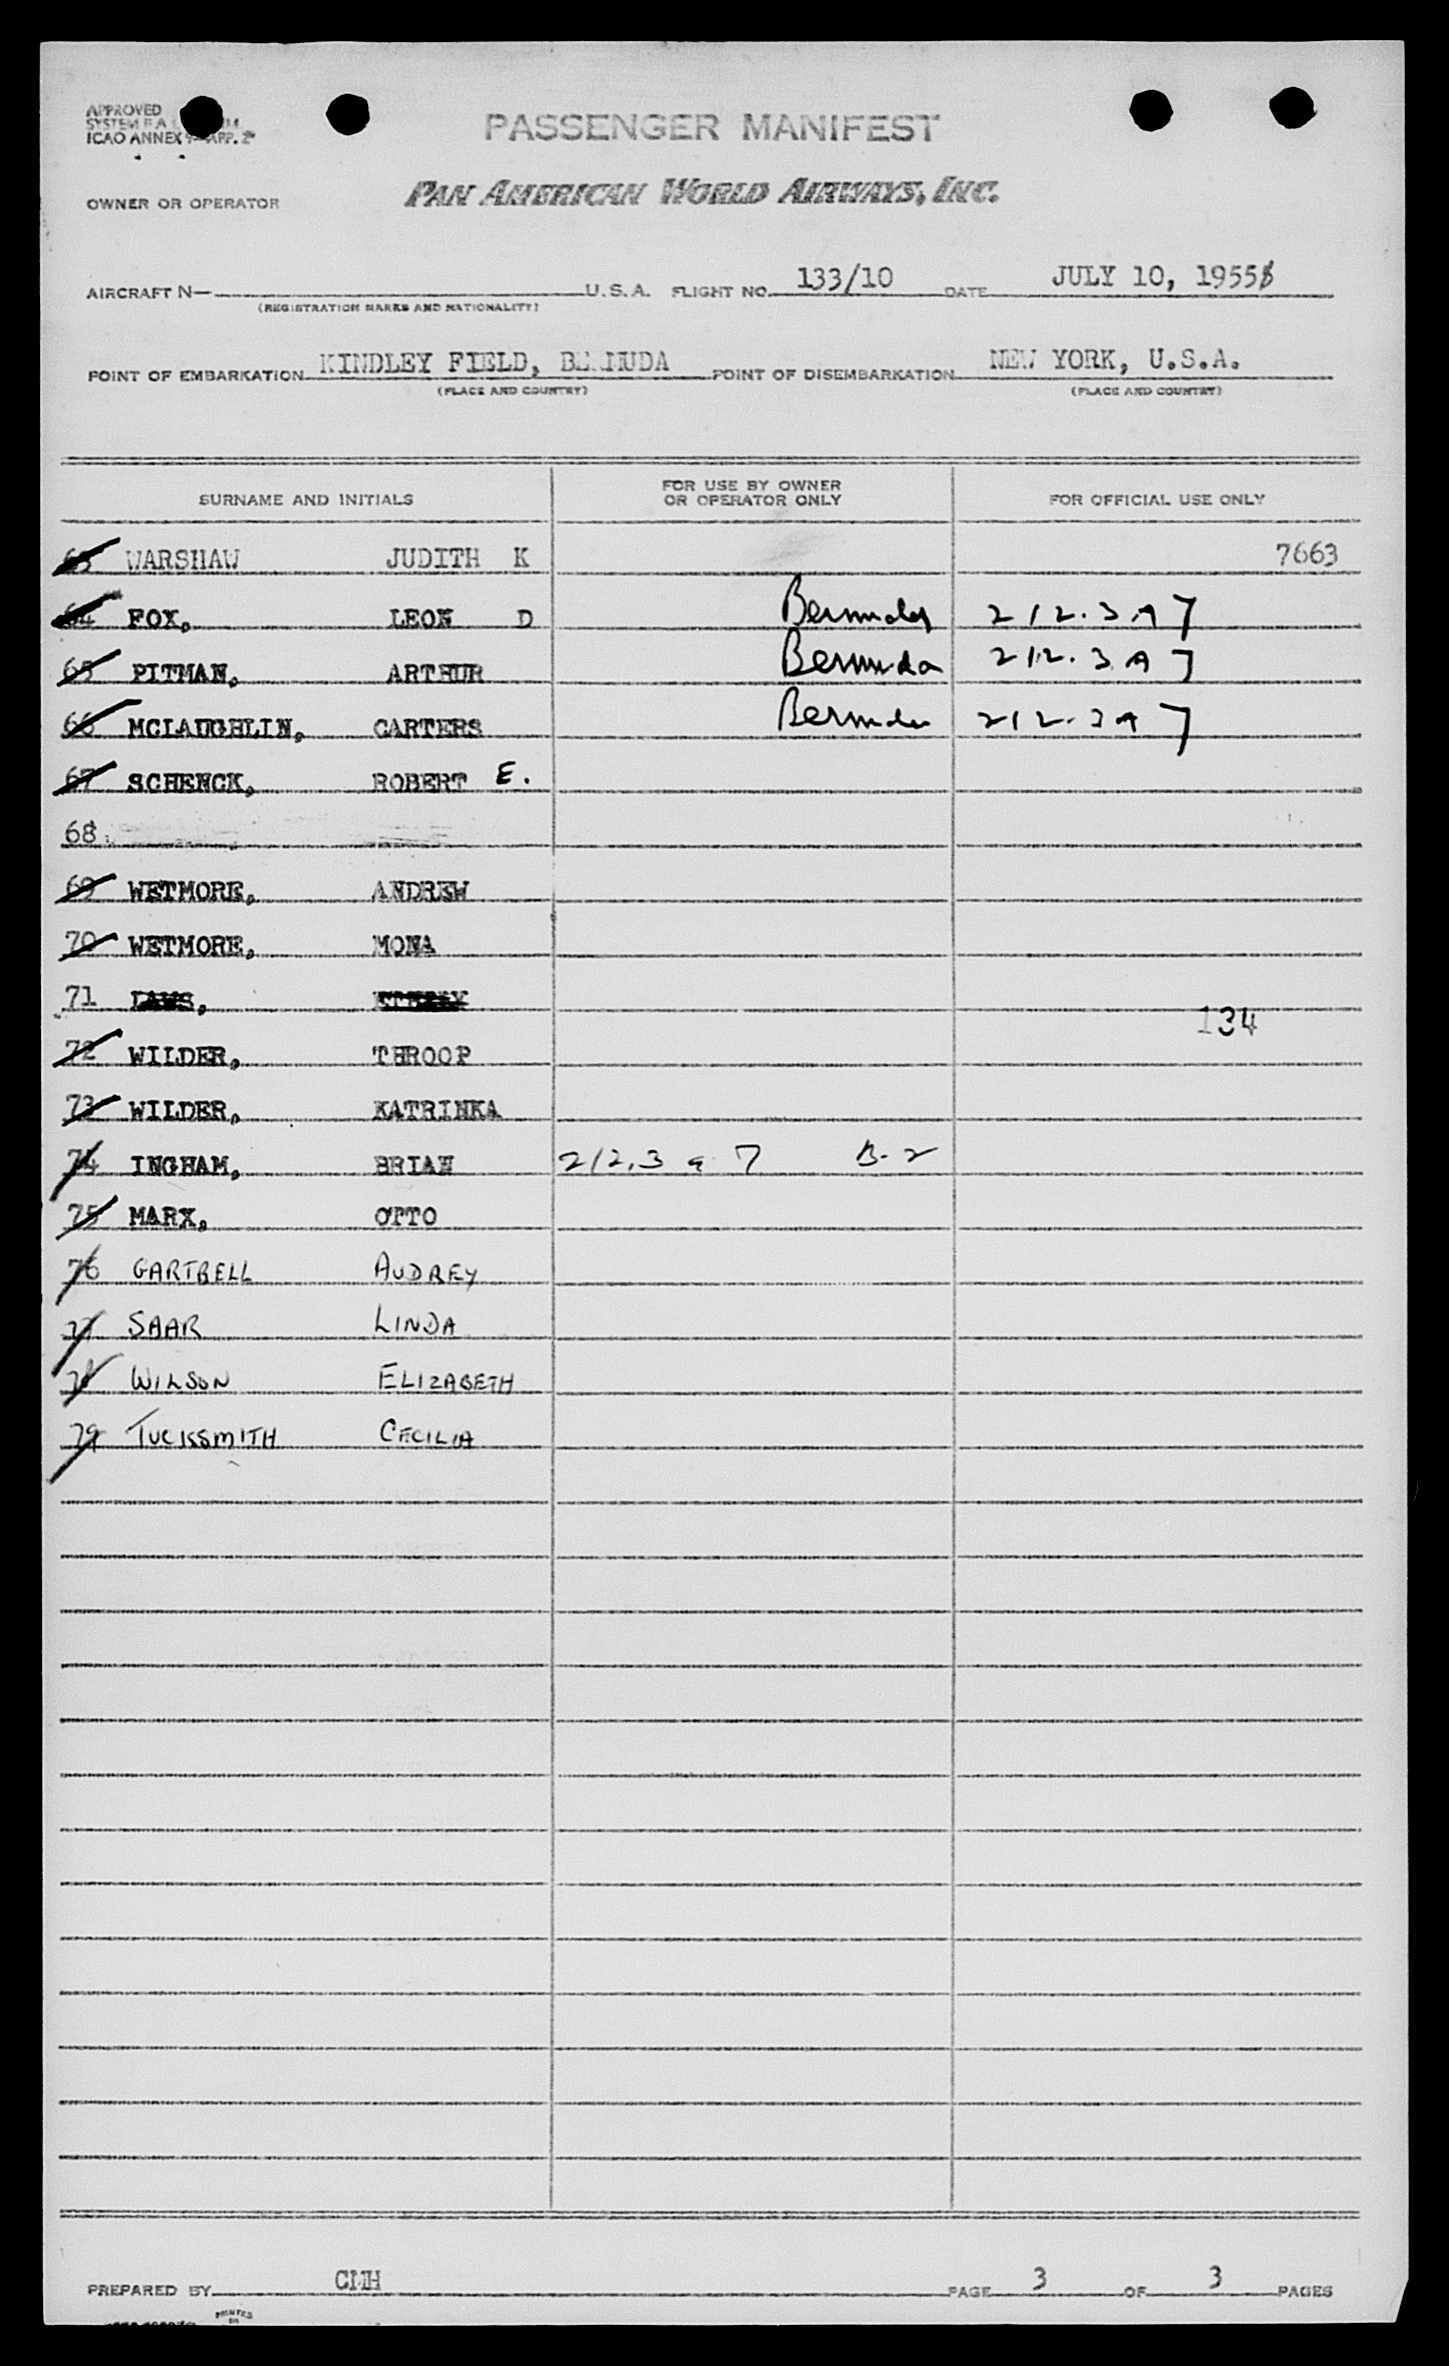 APPROVED
SYSTEM F.A.
ICAO ANNEX 9-APP. 2
PASSENGER MANIFEST
OWNER OR OPERATOR PAN AMERICAN WORLD AIRWAYS, INC.
AIRCRAFT N— U.S.A. FLIGHT NO. 133/10 DATE JULY 10, 1955
(REGISTRATION MARKS AND NATIONALITY)
POINT OF EMBARKATION KINDLEY FIELD, BERMUDA POINT OF DISEMBARKATION NEW YORK, U.S.A.
(PLACE AND COUNTRY) (PLACE AND COUNTRY)
SURNAME AND INITIALS FOR USE BY OWNER OR OPERATOR ONLY FOR OFFICIAL USE ONLY
63 WARSHAW JUDITH K 7663
64 FOX, LEON D Bermuda 212.3 A 7
65 PITMAN, ARTHUR Bermuda 212.3 A 7
66 MCLAUGHLIN, CARTERS Bermuda 212.3 A 7
67 SCHENCK, ROBERT E.
68
69 WETMORE, ANDREW
70 WETMORE, MONA
71
134
72 WILDER, THROOP
73 WILDER, KATRINKA
74 INGHAM, BRIAN 212.3 a 7 B-2
75 MARX, OTTO
76 GARTRELL AUDREY
77 SAAR LINDA
78 WILSON ELIZABETH
79 TUCKSMITH CECILIA
PREPARED BY CMH PAGE 3 OF 3 PAGES
PRINTED
IN